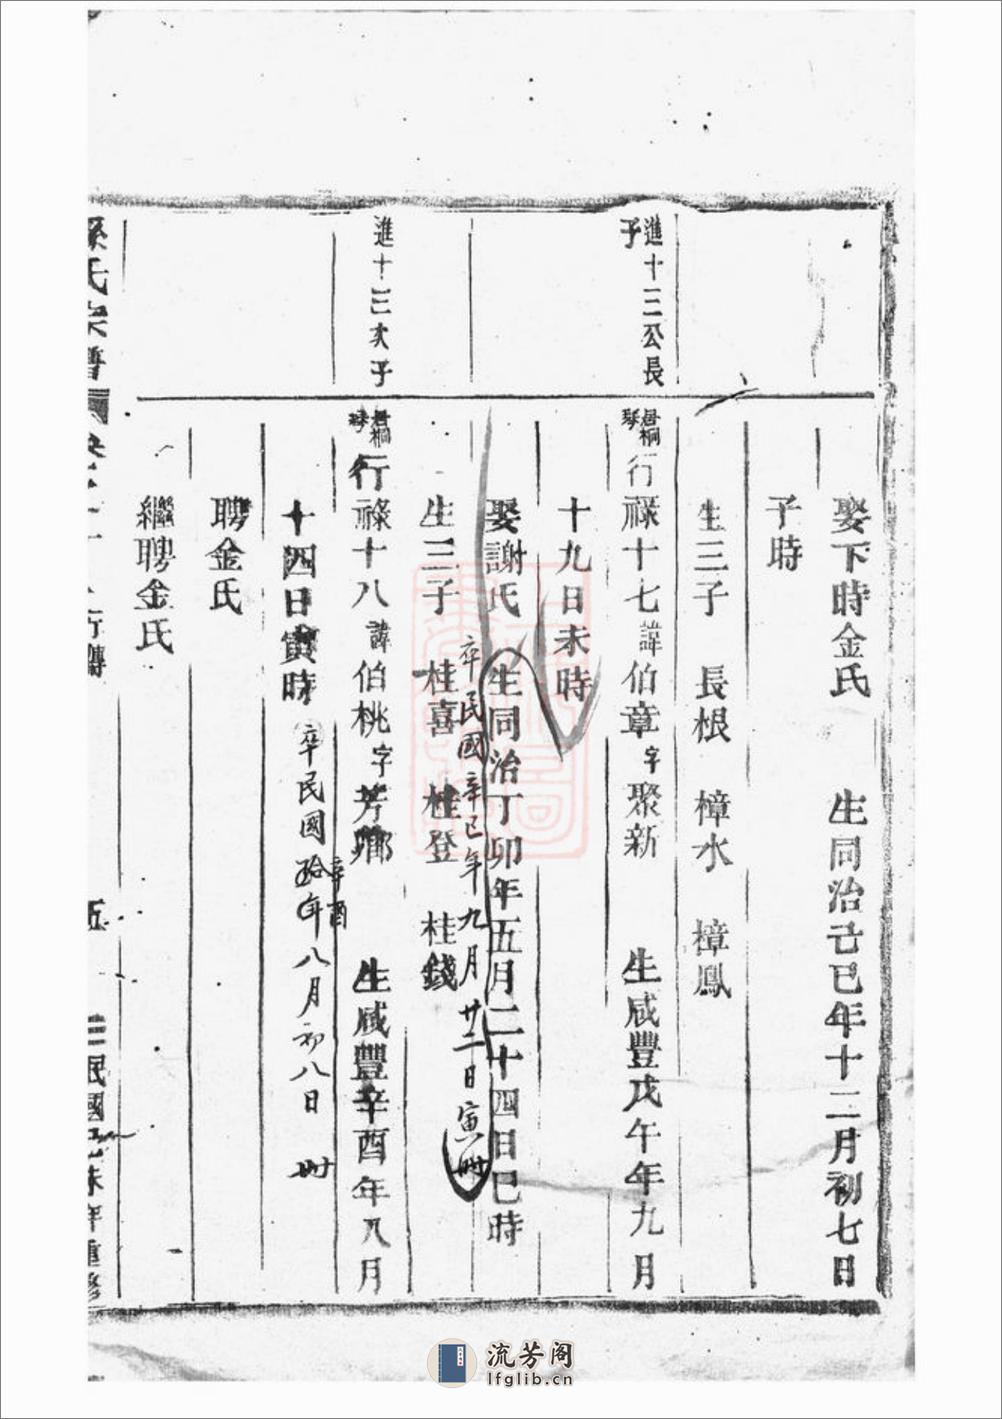 娶下時金氏 生同治己巳年十二月初七日
子時
生三子 長根 樟水 樟鳳
進十三公長子
君桐琴
行祿十七諱伯章字聚新 生咸豐戊午年九月
十九日未時
娶謝氏 生同治丁卯年五月二十四日巳時
卒民國辛巳年九月廿二日寅時
生三子 桂喜 桂登 桂錢
進十三次子
君桐琴
行祿十八諱伯桃字芳鄉 生咸豐辛酉年八月
十四日寅時 卒民國拾年辛酉八月初八日 時
聘金氏
繼聘金氏
孫氏宗譜 行傳 五 民國己未年重修
流芳阁
lfglib.cn